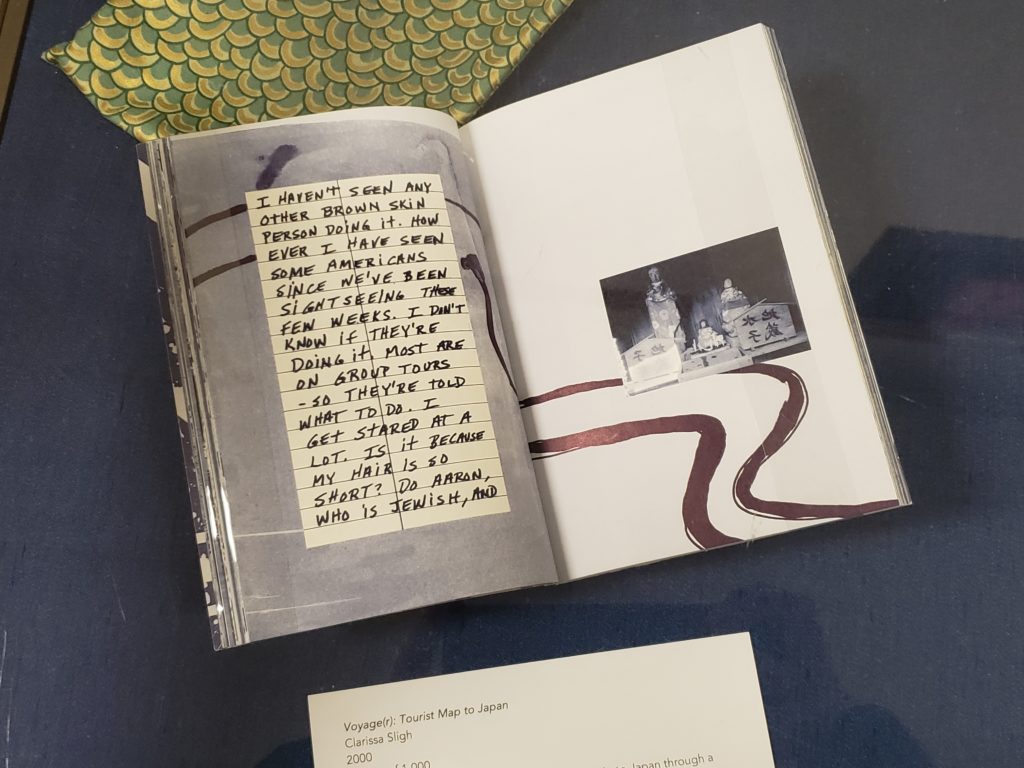 I HAVEN'T SEEN ANY
OTHER BROWN SKIN
PERSON DOING IT. HOW
EVER I HAVE SEEN
SOME AMERICANS
SINCE WE'VE BEEN
SIGHTSEEING THESE
FEW WEEKS. I DON'T
KNOW IF THEY'RE
DOING IT. MOST ARE
ON GROUP TOURS
- SO THEY'RE TOLD
WHAT TO DO. I
GET STARED AT A
LOT. IS IT BECAUSE
MY HAIR IS SO
SHORT? DO AARON,
WHO IS JEWISH, AND
地蔵
水子
Voyage(r): Tourist Map to Japan
Clarissa Sligh
2000
of 1,000
Japan through a